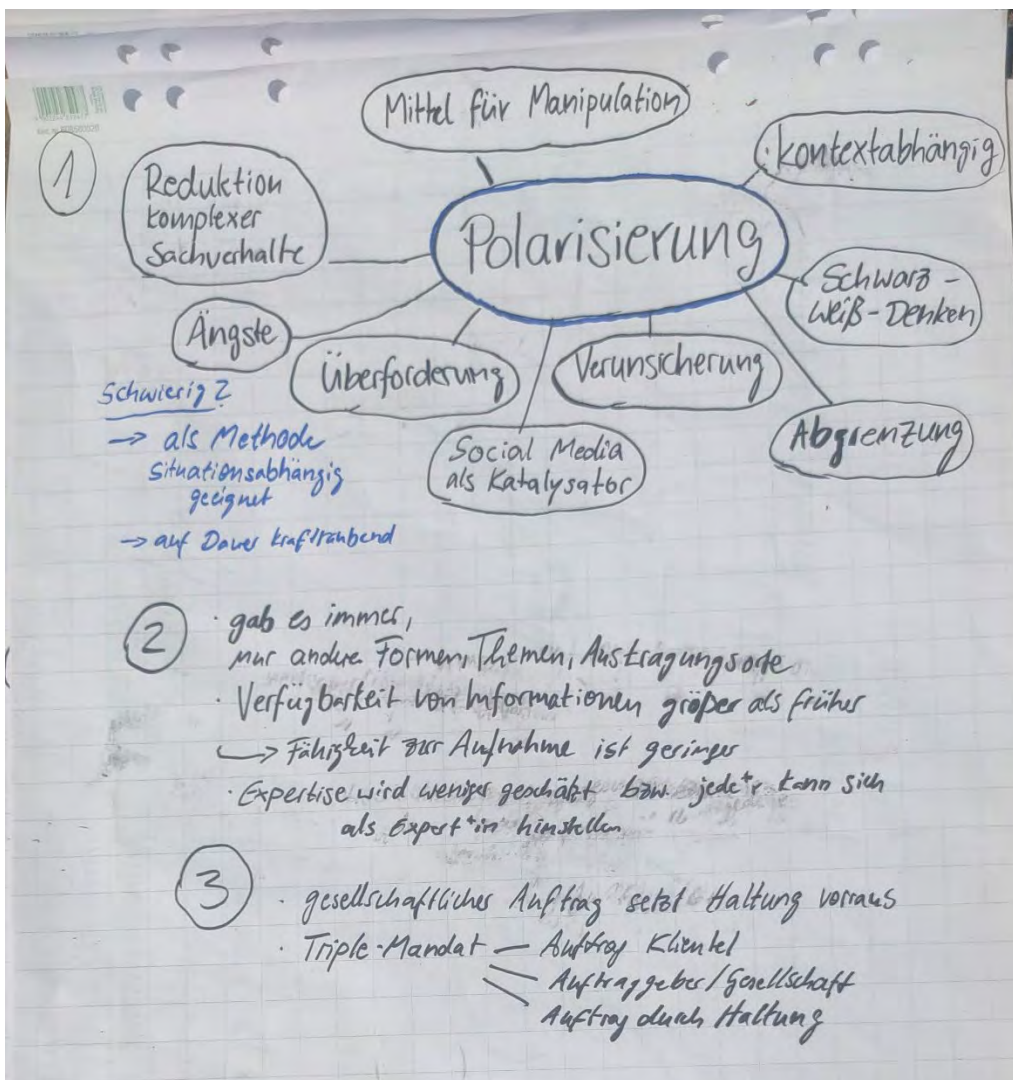 1
Mittel für Manipulation
kontextabhängig
Reduktion
komplexer
Sachverhalte
Polarisierung
Schwarz-
Weiß-Denken
Ängste
Überforderung
Verunsicherung
Abgrenzung
Social Media
als Katalysator
Schwierig?
→ als Methode
situationsabhängig
geeignet
→ auf Dauer kraftraubend
2
· gab es immer,
nur andere Formen, Themen, Austragungsorte
· Verfügbarkeit von Informationen größer als früher
→ Fähigkeit zur Aufnahme ist geringer
· Expertise wird weniger geschätzt bzw. jede*r kann sich
als Expert*in hinstellen
3
· gesellschaftlicher Auftrag setzt Haltung vorraus
· Triple-Mandat — Auftrag Klientel
Auftraggeber/Gesellschaft
Auftrag durch Haltung